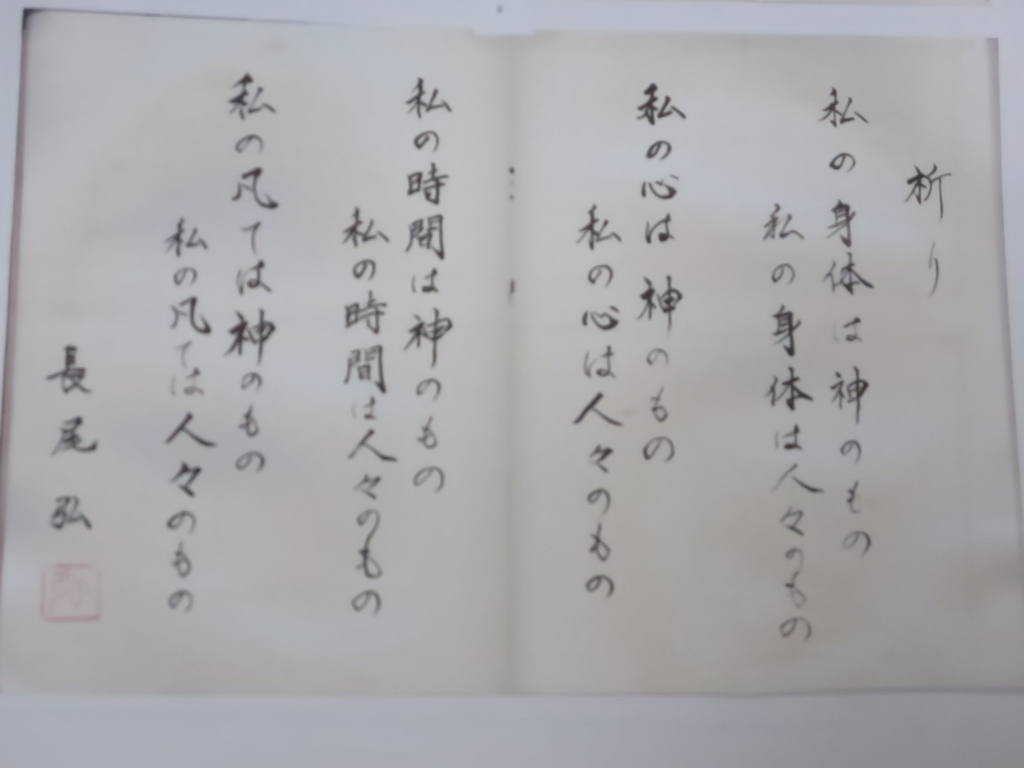 祈り
私の身体は神のもの
私の身体は人々のもの
私の心は神のもの
私の心は人々のもの
私の時間は神のもの
私の時間は人々のもの
私の凡ては神のもの
私の凡ては人々のもの
長尾弘